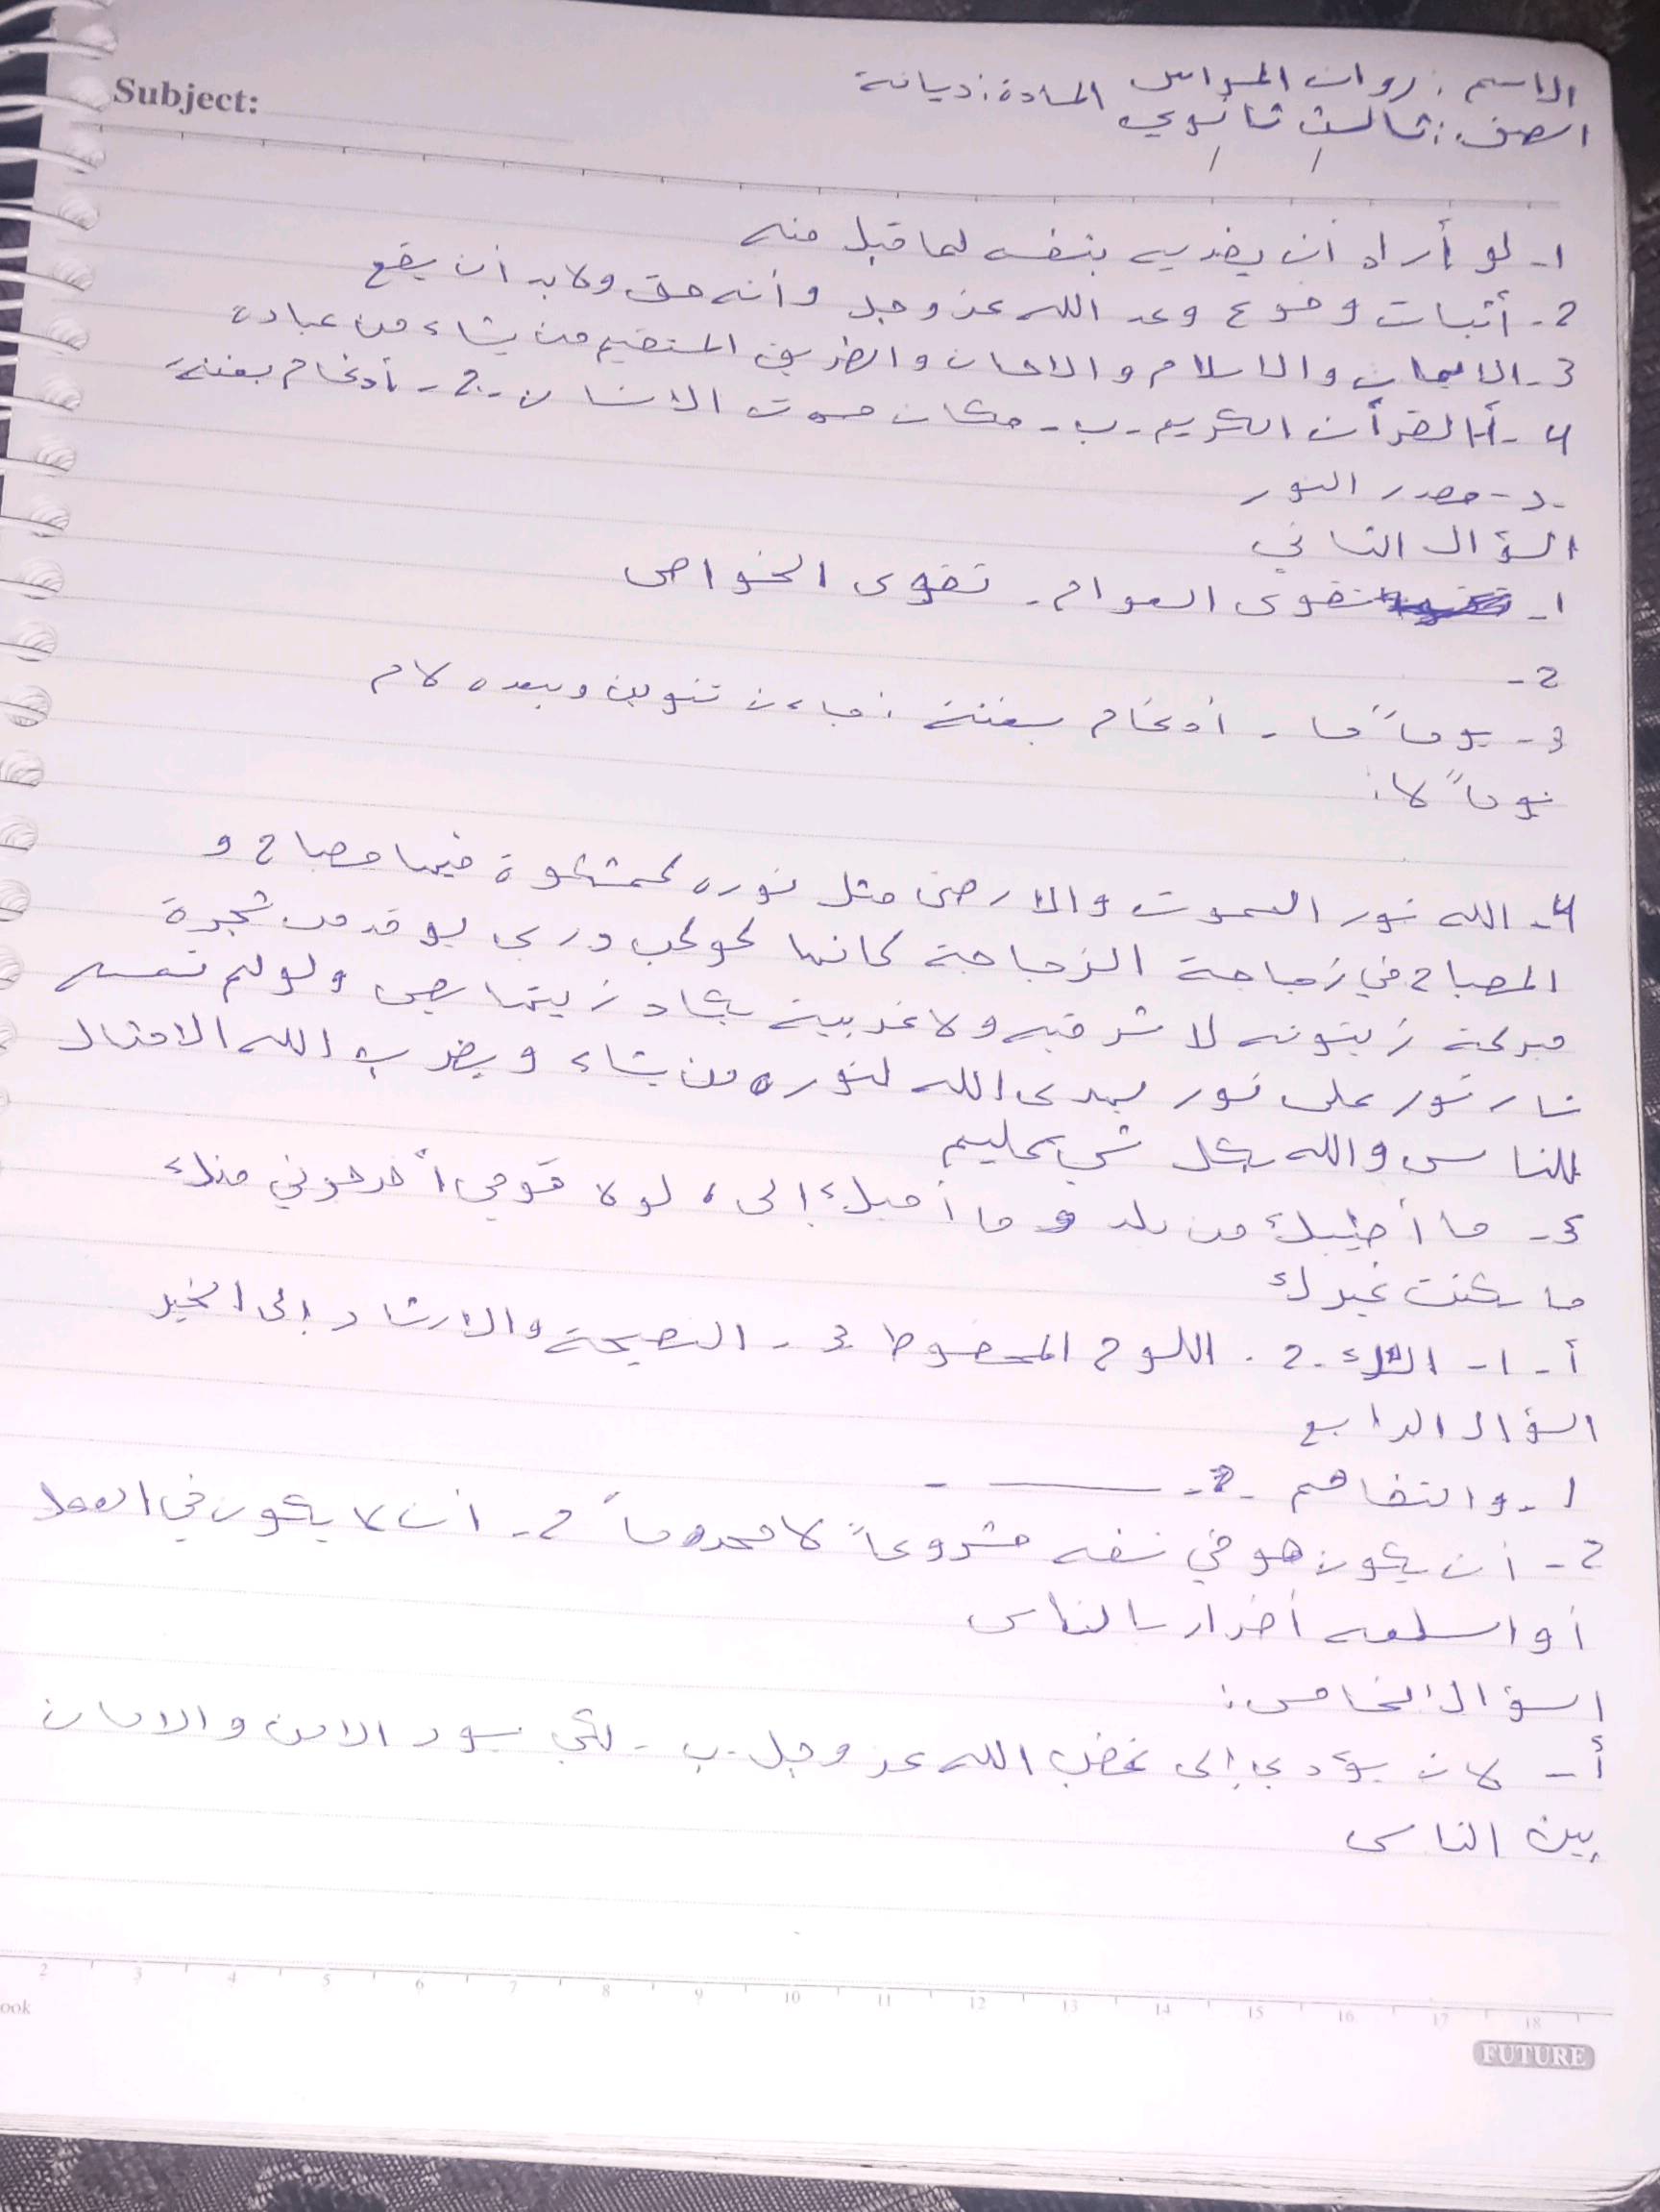 Subject:
الاسم : روان المادة : ديانة
الصف : ثالث ثانوي
1- لو أراد ان يفديه بنفسه لما قبل منه
2- أثبات وقوع وعد الله عز وجل وأنه حق ولابد أن يقع
3- الايمان والاسلام والاحسان والطريق المستقيم من يشاء من عباده
4- أ- القرأن الكريم - ب - مكان موت الانسان - 2 - أدغام بغنة
- د - مصدر النور
السؤال الثاني
1- تقوى العوام - تقوى الخواص
2-
3- يوماً ما - أدغام بغنة : جاءن تنوين وبعده لام
يوماً لا :
4- الله نور السموت والارض مثل نوره كمشكوة فيها مصباح و
المصباح في زجاجة الزجاجة كانها كوكب دري يوقد من شجرة
مبركة زيتونه لا شرقيه ولا غربية يكاد زيتها يضى ولو لم تمسسه
نار نور على نور يهدى الله لنوره من يشاء ويضرب الله الامثال
للناس والله بكل شي عليم
5- ما أطيبك من بلد وما أحبك إلى ، لولا قومي أخرجوني منك
ما سكنت غيرك
أ - 1 - 2 - اللوح المحفوظ 3 - النصيحة والارشاد إلى الخير
السؤال الرابع
1- والتفاهم - 2 -
2- ان يكون هو في نفسه مشروعاً لا محرماً 2- ان لا يكون في العمل
أو السلعه أضرار بالناس
السؤال الخامس :
أ - لان يؤدي إلى غضب الله عز وجل - ب - لكي يسود الامن والامان
بين الناس
2 3 4 5 6 7 8 9 10 11 12 13 14 15 16 17 18
ook
FUTURE